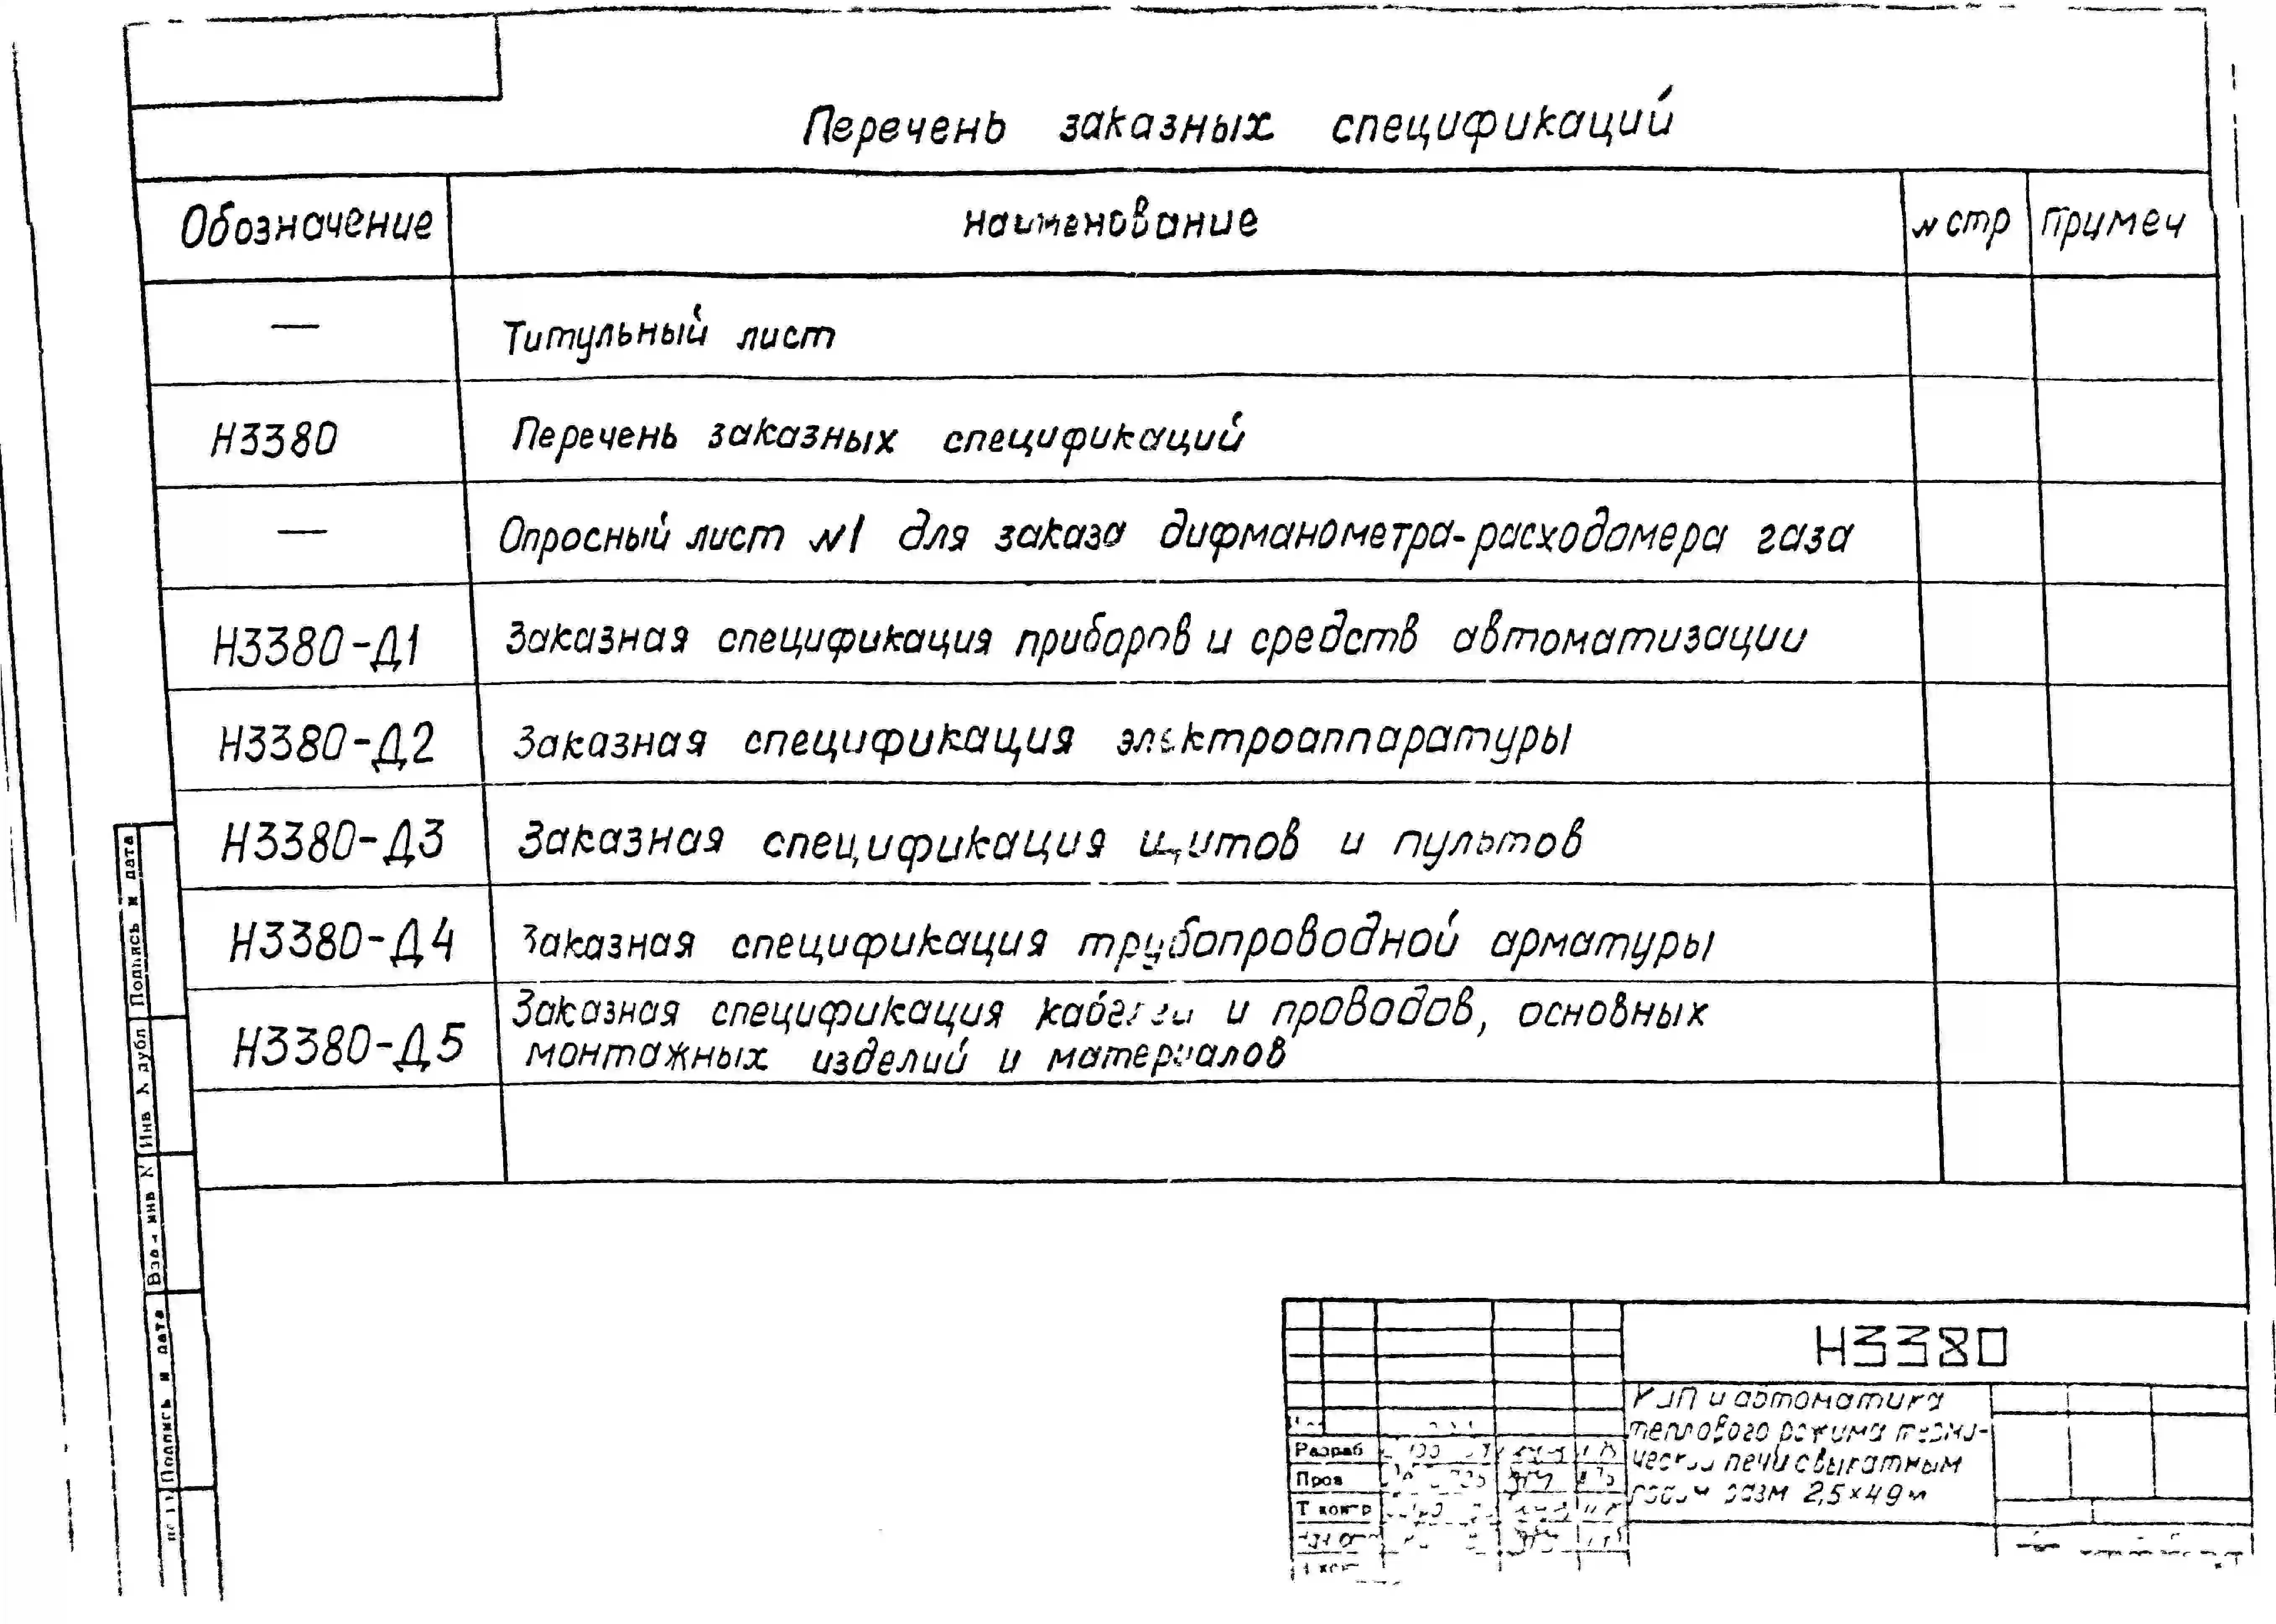 Перечень заказных спецификаций
Обозначение наименование № стр Примеч
— Титульный лист
Н3380 Перечень заказных спецификаций
— Опросный лист №1 для заказа дифманометра-расходомера газа
Н3380-Д1 Заказная спецификация приборов и средств автоматизации
Н3380-Д2 Заказная спецификация электроаппаратуры
Н3380-Д3 Заказная спецификация щитов и пультов
Н3380-Д4 Заказная спецификация трубопроводной арматуры
Н3380-Д5 Заказная спецификация кабелей и проводов, основных
монтажных изделий и материалов
Подпись и дата
Инв № дубл
Взам инв №
Подпись и дата
Н3380
КИП и автоматика
теплового режима терми-
ческой печи с выкатным
подом разм 2,5×4,9м
Разраб
Пров
Т контр